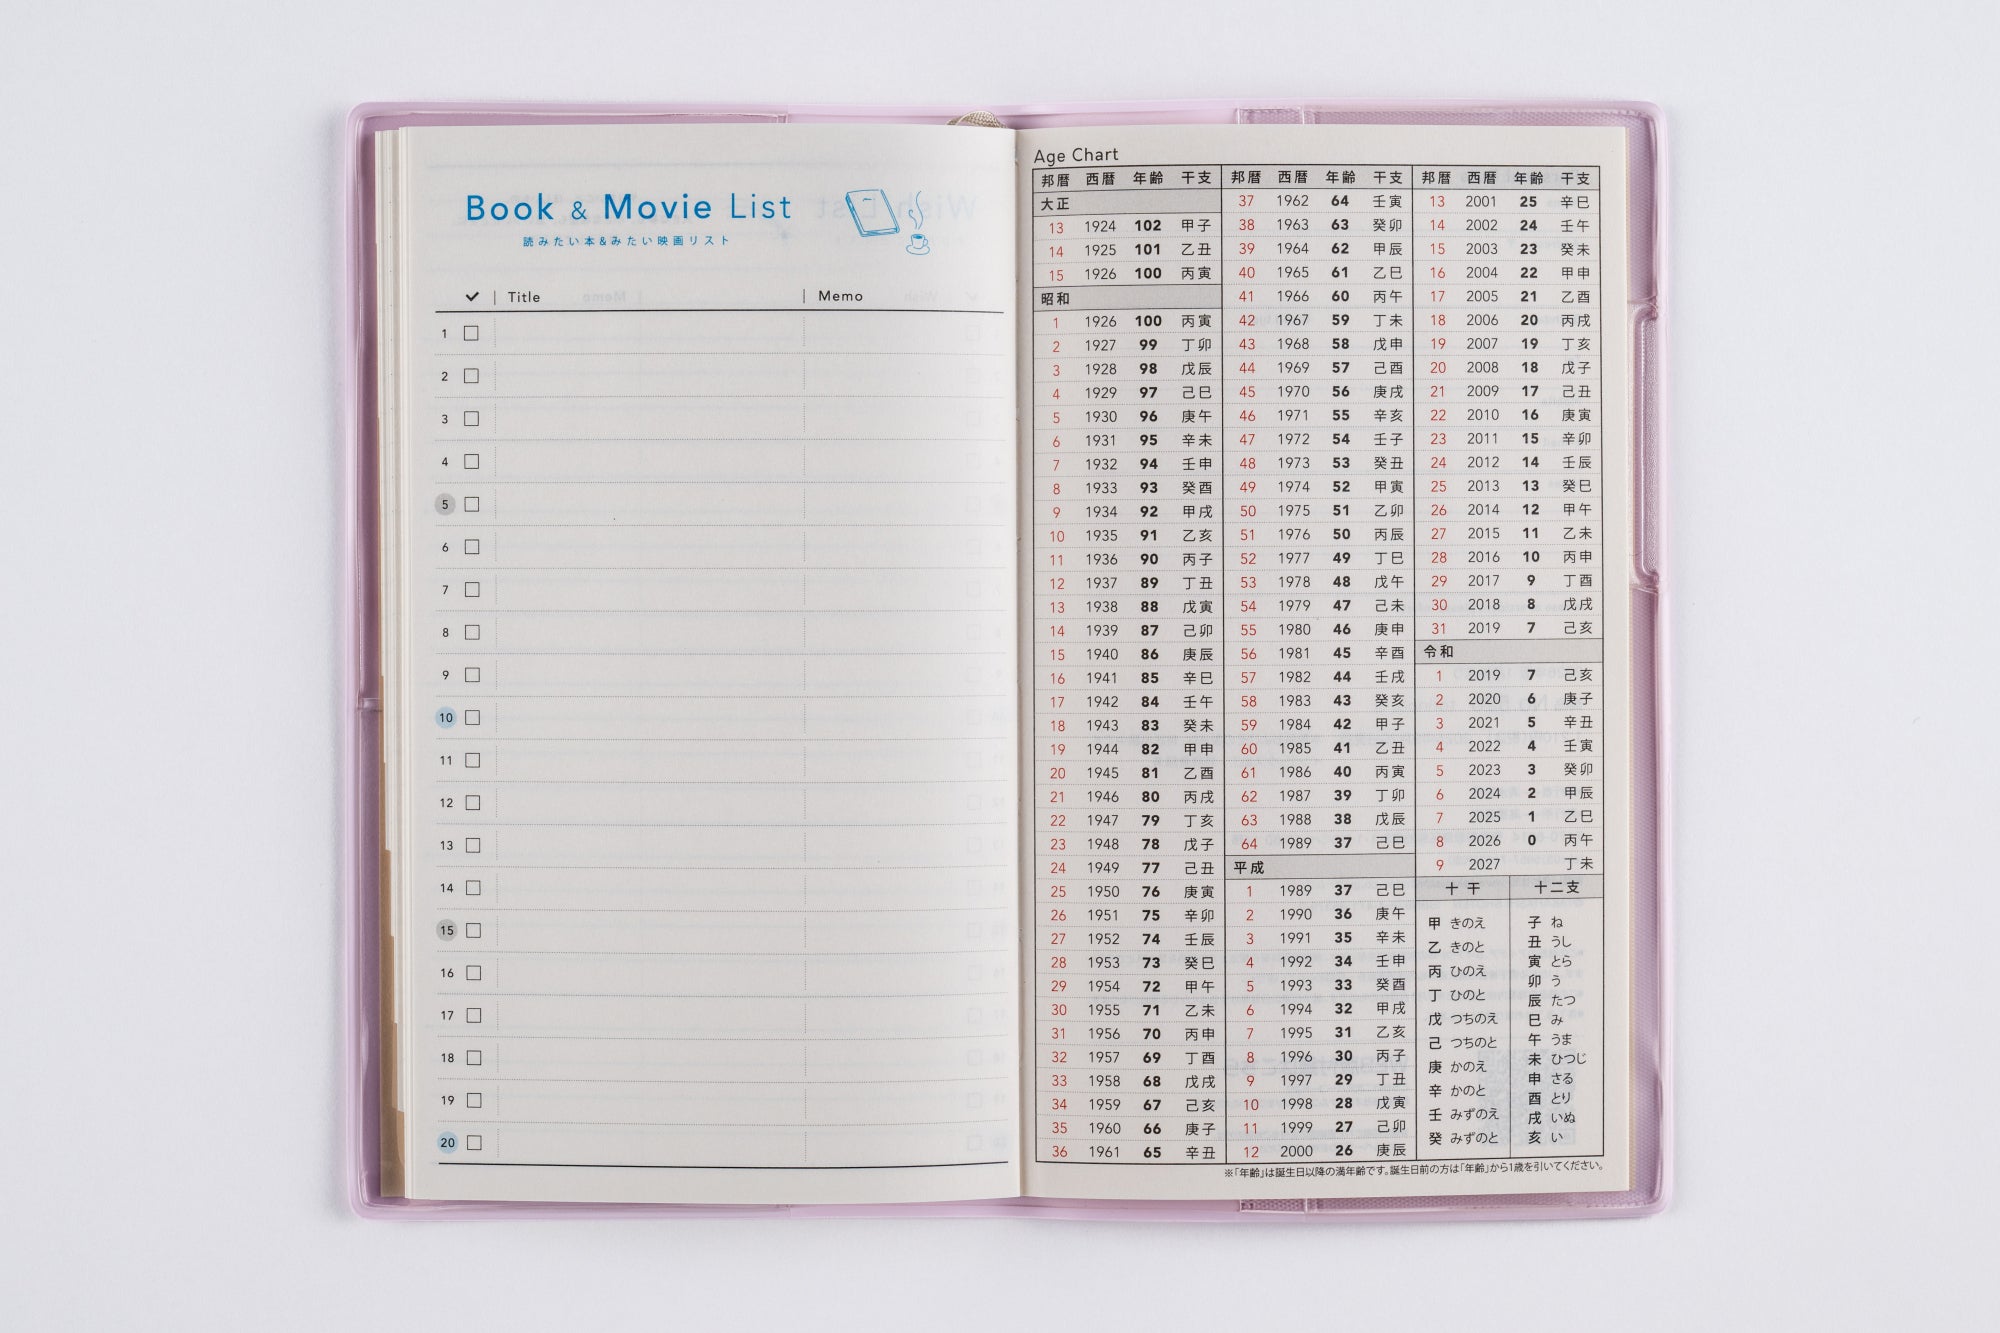 Book & Movie List
読みたい本&みたい映画リスト
✓ | Title | Memo
1
2
3
4
5
6
7
8
9
10
11
12
13
14
15
16
17
18
19
20
Age Chart
邦暦 西暦 年齢 干支
大正
13 1924 102 甲子
14 1925 101 乙丑
15 1926 100 丙寅
昭和
1 1926 100 丙寅
2 1927 99 丁卯
3 1928 98 戊辰
4 1929 97 己巳
5 1930 96 庚午
6 1931 95 辛未
7 1932 94 壬申
8 1933 93 癸酉
9 1934 92 甲戌
10 1935 91 乙亥
11 1936 90 丙子
12 1937 89 丁丑
13 1938 88 戊寅
14 1939 87 己卯
15 1940 86 庚辰
16 1941 85 辛巳
17 1942 84 壬午
18 1943 83 癸未
19 1944 82 甲申
20 1945 81 乙酉
21 1946 80 丙戌
22 1947 79 丁亥
23 1948 78 戊子
24 1949 77 己丑
25 1950 76 庚寅
26 1951 75 辛卯
27 1952 74 壬辰
28 1953 73 癸巳
29 1954 72 甲午
30 1955 71 乙未
31 1956 70 丙申
32 1957 69 丁酉
33 1958 68 戊戌
34 1959 67 己亥
35 1960 66 庚子
36 1961 65 辛丑
邦暦 西暦 年齢 干支
37 1962 64 壬寅
38 1963 63 癸卯
39 1964 62 甲辰
40 1965 61 乙巳
41 1966 60 丙午
42 1967 59 丁未
43 1968 58 戊申
44 1969 57 己酉
45 1970 56 庚戌
46 1971 55 辛亥
47 1972 54 壬子
48 1973 53 癸丑
49 1974 52 甲寅
50 1975 51 乙卯
51 1976 50 丙辰
52 1977 49 丁巳
53 1978 48 戊午
54 1979 47 己未
55 1980 46 庚申
56 1981 45 辛酉
57 1982 44 壬戌
58 1983 43 癸亥
59 1984 42 甲子
60 1985 41 乙丑
61 1986 40 丙寅
62 1987 39 丁卯
63 1988 38 戊辰
64 1989 37 己巳
平成
1 1989 37 己巳
2 1990 36 庚午
3 1991 35 辛未
4 1992 34 壬申
5 1993 33 癸酉
6 1994 32 甲戌
7 1995 31 乙亥
8 1996 30 丙子
9 1997 29 丁丑
10 1998 28 戊寅
11 1999 27 己卯
12 2000 26 庚辰
邦暦 西暦 年齢 干支
13 2001 25 辛巳
14 2002 24 壬午
15 2003 23 癸未
16 2004 22 甲申
17 2005 21 乙酉
18 2006 20 丙戌
19 2007 19 丁亥
20 2008 18 戊子
21 2009 17 己丑
22 2010 16 庚寅
23 2011 15 辛卯
24 2012 14 壬辰
25 2013 13 癸巳
26 2014 12 甲午
27 2015 11 乙未
28 2016 10 丙申
29 2017 9 丁酉
30 2018 8 戊戌
31 2019 7 己亥
令和
1 2019 7 己亥
2 2020 6 庚子
3 2021 5 辛丑
4 2022 4 壬寅
5 2023 3 癸卯
6 2024 2 甲辰
7 2025 1 乙巳
8 2026 0 丙午
9 2027 丁未
十干
甲 きのえ
乙 きのと
丙 ひのえ
丁 ひのと
戊 つちのえ
己 つちのと
庚 かのえ
辛 かのと
壬 みずのえ
癸 みずのと
十二支
子 ね
丑 うし
寅 とら
卯 う
辰 たつ
巳 み
午 うま
未 ひつじ
申 さる
酉 とり
戌 いぬ
亥 い
※「年齢」は誕生日以降の満年齢です。誕生日前の方は「年齢」から1歳を引いてください。